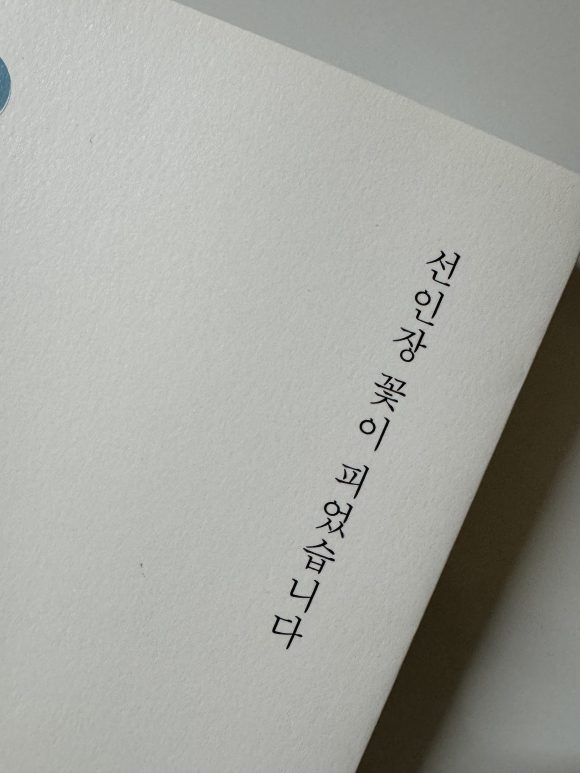 선인장 꽃이 피었습니다